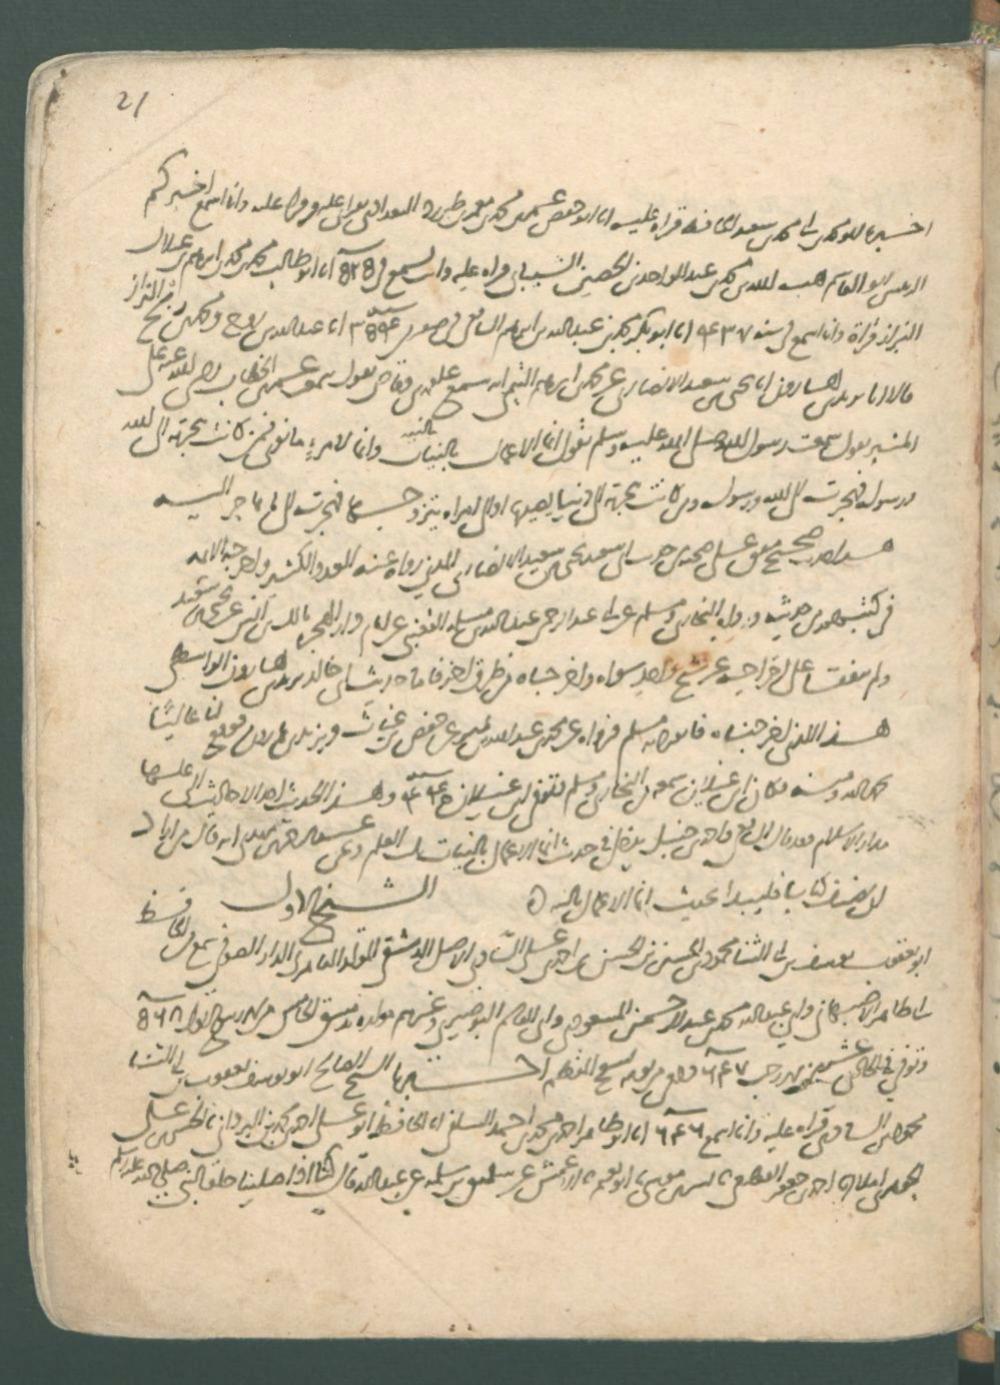 21
اخبرنا ابو محمد بن محمد بن سعد الحافظ قراة عليه انا ابو حفص عمر بن محمد بن معمر بن طبرزد البغدادي قراة عليه وانا اسمع اخبركم
الرئيس ابو القاسم هبة الله بن محمد بن عبد الواحد بن الحصين الشيباني قراة عليه وانت تسمع في انا ابو طالب محمد بن محمد بن ابراهيم بن غيلان
البزاز قراة وانا اسمع في سنة ٤٣٧ انا ابو بكر محمد بن عبد الله بن ابراهيم الشافعي في صفر انا عبد الله بن روح ومحمد بن رمح البزاز
قالا انا يزيد بن هارون انا يحيى بن سعيد الانصاري عن محمد بن ابراهيم التيمي انه سمع علقمة بن وقاص يقول سمعت عمر بن الخطاب رضي الله عنه على
المنبر يقول سمعت رسول الله صلى الله عليه وسلم يقول انما الاعمال بالنيات بالنية وانما لامرئ ما نوى فمن كانت هجرته الى الله
ورسوله فهجرته الى الله ورسوله ومن كانت هجرته الى دنيا يصيبها او الى امراة يتزوجها فهجرته الى ما هاجر اليه
هذا حديث صحيح متفق على صحته من حديث ابي سعيد يحيى بن سعيد الانصاري المدني رواه عنه العدد الكثير واخرجه الائمة
في كتبهم من حديثه ورواه البخاري ومسلم عن ابي عبد الرحمن عبد الله بن مسلمة القعنبي عن امام دار الهجرة مالك بن انس عن يحيى بن سعيد
ولم يتفقا على اخراجه عن شيخ واحد سواه واخرجاه من طرق اخر فاما حديث ابي خالد يزيد بن هارون الواسطي
هذا الذي اخرجناه فانفرد به مسلم فرواه عن محمد بن عبد الله بن نمير عن حفص بن غياث ويزيد بن هارون فوقع لنا عاليا
بحمد الله ومنه فكان ابن غيلان سمعه من البخاري ومسلم توفي ابن غيلان وهذا الحديث احد الاحاديث التي عليها
مدار الاسلام فقد قال الشافعي واحمد بن حنبل يدخل في حديث انما الاعمال بالنيات ثلث العلم وعن عبد الرحمن بن مهدي انه قال من اراد
ان يصنف كتابا فليبدا بحديث انما الاعمال بالنية ۞ الشيخ الاول
ابو يعقوب يوسف بن ابي الثنا محمود بن الحسين بن الحسن بن احمد بن علي الساوي الاصل الدمشقي المولد القاهري الدار الصوفي سمع من الحافظ
ابي طاهر الاصبهاني وابي عبد الله محمد بن عبد الرحمن المسعودي وابي القاسم البوصيري وغيرهم مولده بدمشق الخامس من شهر ربيع الاول
وتوفي في الحادي عشر من رجب ودفن من يومه بسفح المقطم اخبرنا الشيخ الصالح ابو يعقوب يوسف بن ابي الثنا
محمود الساوي قراة عليه وانا اسمع انا ابو طاهر احمد بن محمد بن احمد السلفي انا الحافظ ابو علي احمد بن محمد البرداني نا الحسن بن علي
احمد بن جعفر القطيعي نا بشر بن موسى نا ابو نعيم نا الاعمش عن شقيق بن سلمة عن عبد الله قال كنا اذا صلينا خلف النبي صلى الله عليه وسلم